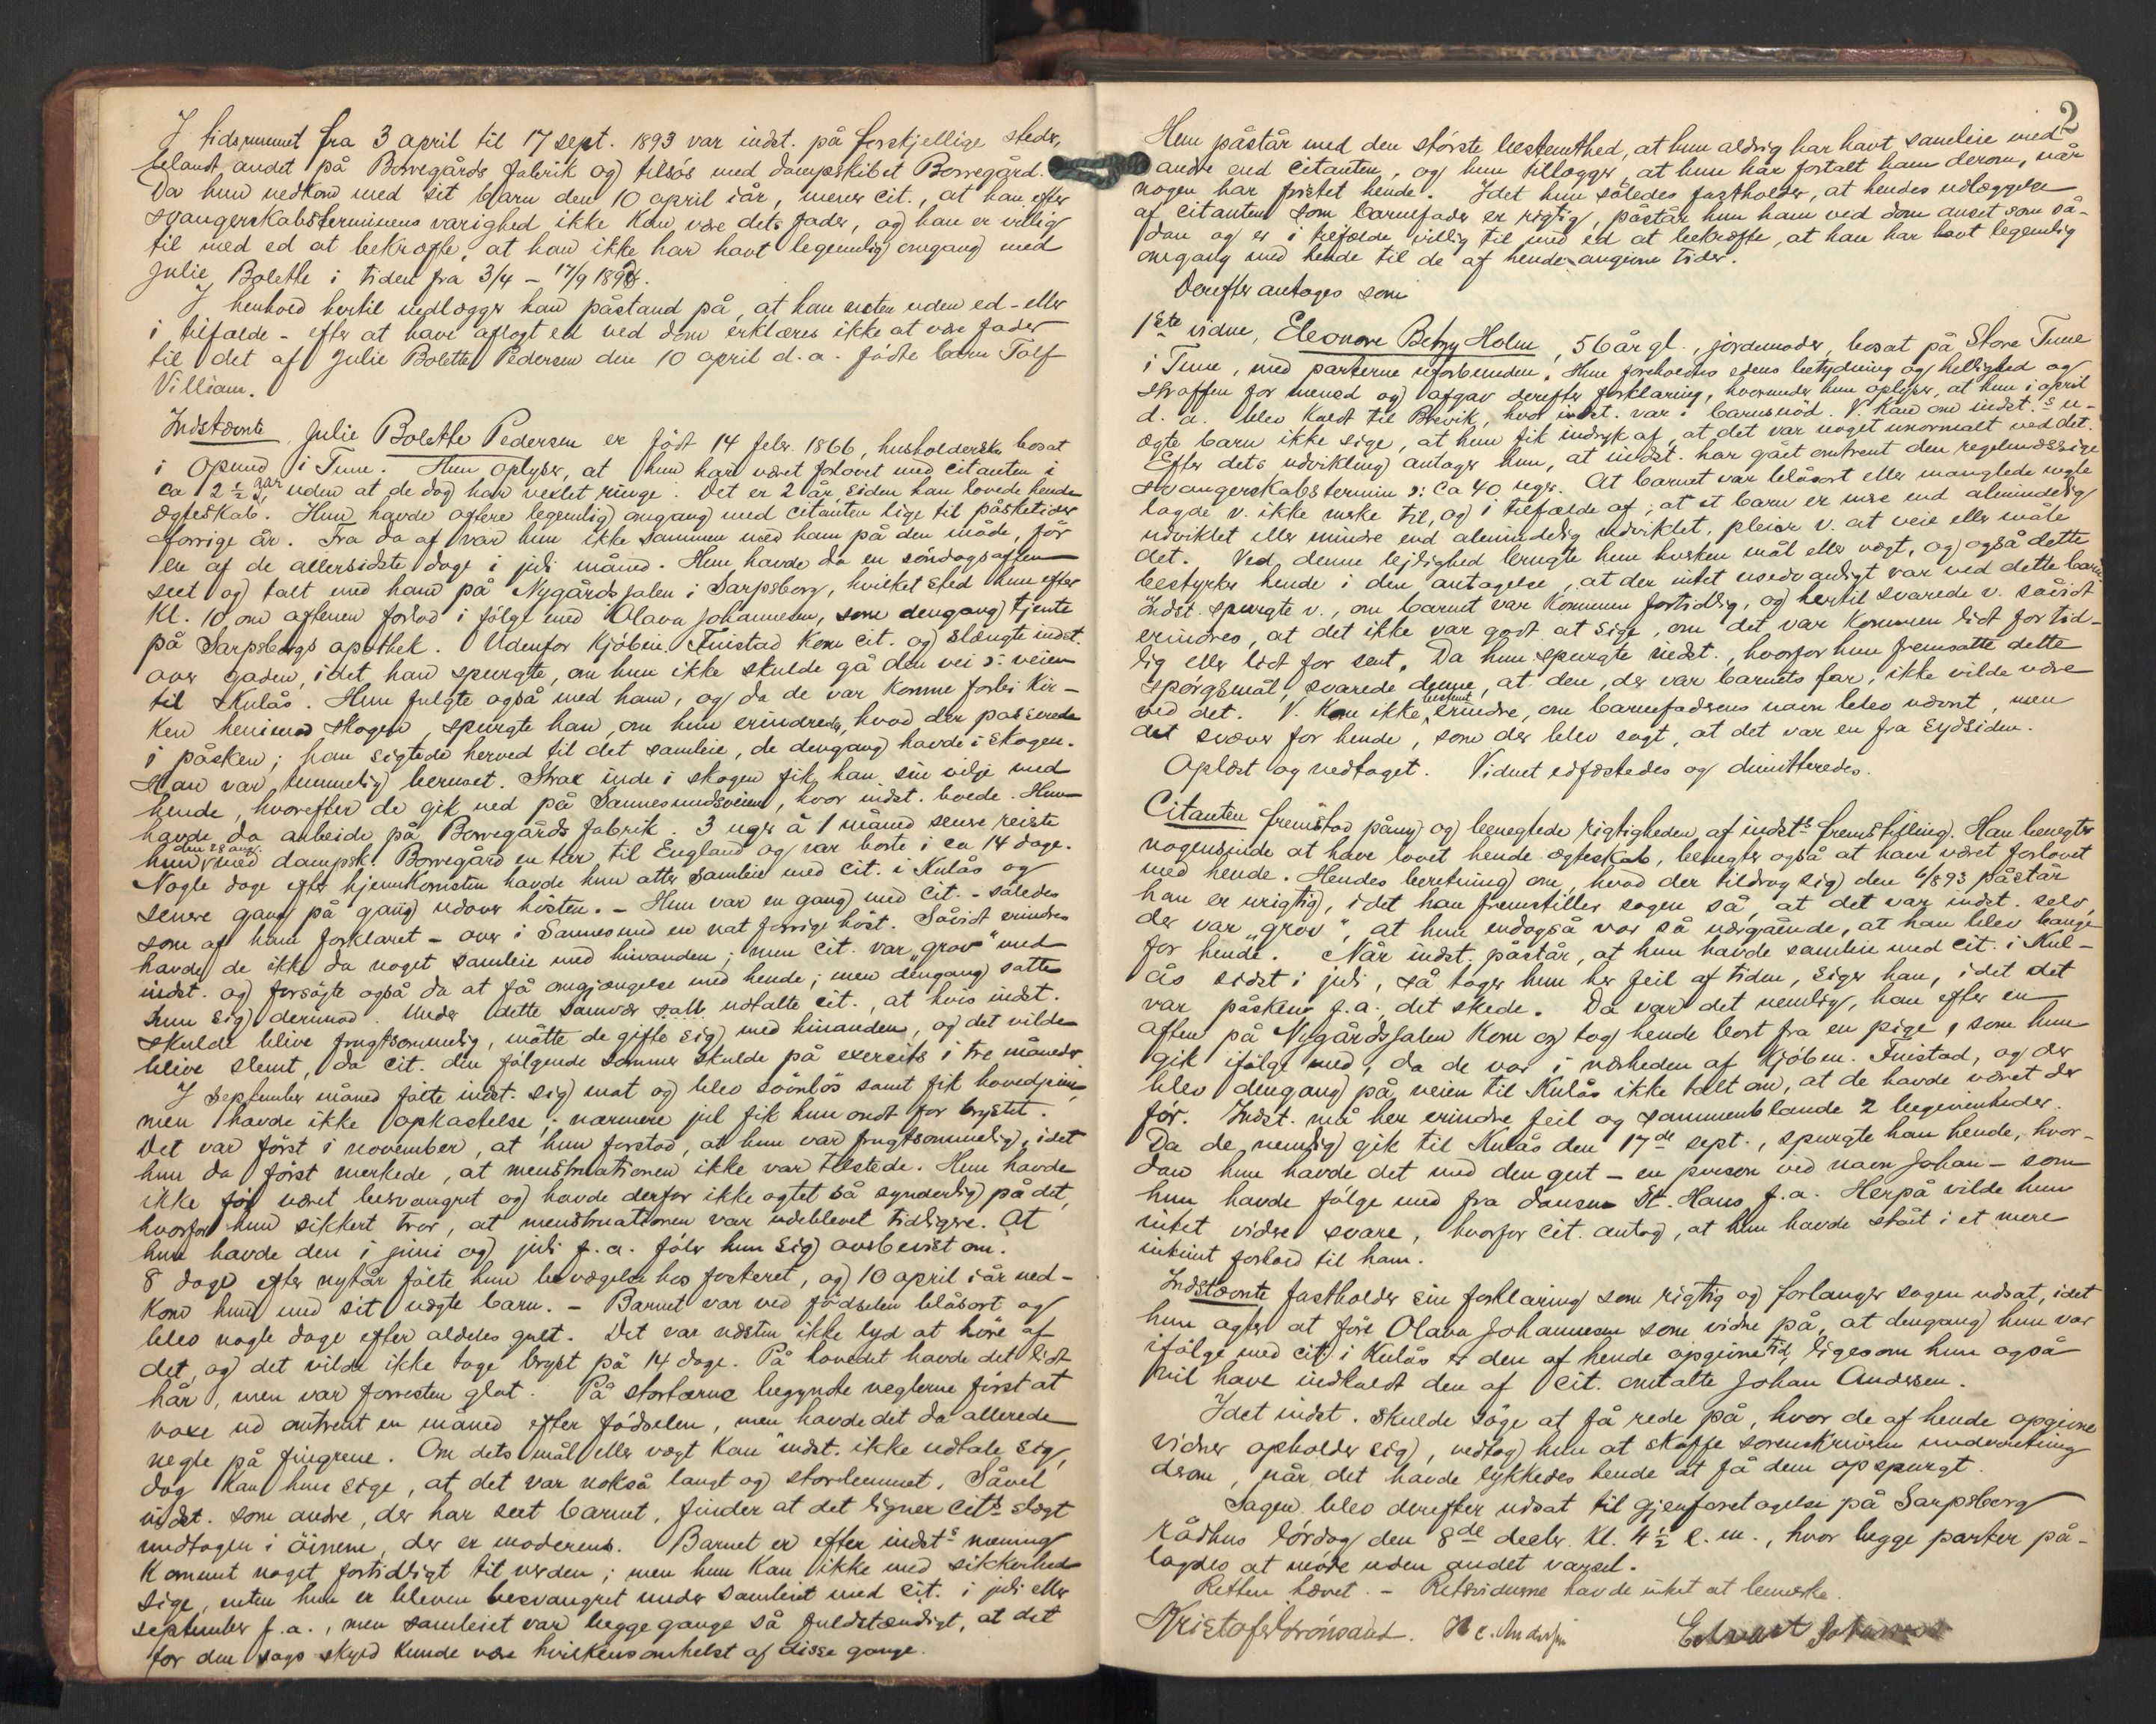 I tidsrummet fra 3 april til 17 sept. 1893 var indst. på forskjellige steder,
blandt andet på Borregårds fabrik og tilsös med dampskibet Borregård.
Da hun nedkom med sit barn den 10 april iår, mener cit., at han efter
svangerskabsterminens varighed ikke kan være dets fader, og han er villig
til med ed at bekræfte, at han ikke har havt legemlig omgang med
Julie Bolette i tiden fra 3/4 – 17/9 1893.
I henhold hertil nedlægger han påstand på, at han enten uden ed - eller
i tilfælde - efter at have aflagt ed ved dom erklæres ikke at være fader
til det af Julie Bolette Pedersen den 10 april d. a. födte barn Tolf
Villiam.
Indstævnte, Julie Bolette Pedersen er födt 14 febr. 1866, husholderske bosat
i Opsund i Tune. Hun oplyser, at hun har været forlovet med citanten i
ca 2 1/2 år uden at de dog har vexlet ringe. Det er 2 år, siden han lovede hende
ægteskab. Hun havde oftere legemlig omgang med citanten lige til påsketider
forrige år. Fra da af var hun ikke sammen med ham på den måde, för
en af de allersidste dage i juli måned. Hun havde da en söndagsaften
seet og talt med ham på Nygårdssalen i Sarpsborg, hvilket sted hun efter
Kl. 10 om aftenen forlod i fölge med Olava Johannesen, som dengang tjente
på Sarpsborgs apothek. Udenfor Kjöbm. Finstad kom cit. og slængte indst.
over gaden, idet han spurgte, om hun ikke skulde gå den vei ɔ: veien
til Kulås. Hun fulgte også med ham, og da de var komne forbi Kir-
ken henimod skogen, spurgte han, om hun erindrede, hvad der passerede
i påsken; han sigtede herved til det samleie, de dengang havde i skogen.
Han var temmelig beruset. Strax inde i skogen fik han sin vilje med
hende, hvorefter de gik ned på Sannesundsveien, hvor indst. boede. Hun
havde da arbeide på Borregårds fabrik. 3 uger à 1 måned senere reiste
hun den 28 aug. med dampsk. Borregård en tur til England og var borte i ca 14 dage.
Nogle dage efter hjemkomsten havde hun atter samleie med cit. i Kulås og
senere gang på gang udover hösten. – Hun var en gang med cit. - således
som af ham forklaret - over i Sannesund en nat forrige höst. Såvidt erindres
havde de ikke da noget samleie med hinanden; men cit. var „grov“ med
indst. og forsögte også da at få omgjængelse med hende; men dengang satte
hun sig derimod. Under dette samvær udtalte cit., at hvis indst.
skulde blive frugtsommelig, måtte de gifte sig med hinanden, og det vilde
blive slemt, da cit. den fölgende sommer skulde på exercits i tre måneder.
I september måned fölte indst. sig mat og blev sövnlös samt fik hovedpine,
men havde ikke opkastelse; nærmere jul fik hun ondt for brystet.
Det var först i november, at hun forstod, at hun var frugtsommelig, idet
hun da först merkede, at menstruationen ikke var tilstede. Hun havde
ikke för været besvangret og havde derfor ikke agtet så synderlig på det,
hvorfor hun sikkert tror, at menstruationen var udeblevet tidligere. At
hun havde den i juni og juli f. a. föler hun sig overbevist om.
8 dage efter nytår fölte hun bevægelse hos fosteret, og 10 april iår ned-
kom hun med sit uægte barn. – Barnet var ved födselen blåsort og
blev nogle dage efter aldeles gult. Det var næsten ikke lyd at höre af
det, og det vilde ikke tage bryst på 14 dage. På hovedet havde det lidt
hår, men var forresten glat. På stortærne begyndte neglerne först at
voxe ud omtrent en måned efter födselen, men havde det da allerede
negle på fingrene. Om dets mål eller vægt kan indst. ikke udtale sig,
dog kan hun sige, at det var nokså langt og storlemmet. Såvel
indst. som andre, der har seet barnet, finder at det ligner cits slægt
undtagen i öinene, der er moderens. Barnet er efter indsts mening
kommet noget fortidligt til verden; men hun kan ikke med sikkerhed
sige, enten hun er bleven besvangret under samleiet med cit. i juli eller
september f. a., men samleiet var begge gange så fuldstændigt, at det
for den sags skyld kunde være hvilkensomhelst af disse gange.
2
Hun påstår med den störste bestemthed, at hun aldrig har havt samleie med
andre end citanten, og hun tillægger, at hun har fortalt ham derom, når
nogen har fristet hende. Idet hun således fastholder, at hendes udlæggelse
af citanten som barnefader er rigtig, påstår hun ham ved dom anset som så-
dan og er i tilfælde villig til med ed at bekræfte, at han har havt legemlig
omgang med hende til de af hende angivne tider.
Derefter antoges som
1ste vidne, Eleonore Betzy Holm, 56 år gl., jordemoder, bosat på Store Tune
i Tune, med parterne uforbunden. Hun foreholdtes edens betydning og hellighed og
straffen for mened og afgav derefter forklaring, hvorunder hun oplyser, at hun i april
d. a. blev kaldt til Brevik, hvor indst. var i barnsnöd. V. kan om indst.s u-
ægte barn ikke sige, at hun fik indtryk af, at det var noget unormalt ved det.
Efter dets udvikling antager hun, at indst. har gået omtrent den regelmæssige
svangerskabstermin ɔ: ca 40 uger. At barnet var blåsort eller manglede negle
lagde v. ikke merke til, og i tilfælde af, at et barn er mere end almindelig
udviklet eller mindre end almindelig udviklet, pleier v. at veie eller måle
det. Ved denne lejlighed brugte hun hverken mål eller vægt, og også dette
bestyrker hende i den antagelse, at der intet usedvanligt var ved dette barn.
Indst. spurgte v., om barnet var kommen fortidlig, og hertil svarede v. såvidt
erindres, at det ikke var godt at sige, om det var kommen lidt for tid-
lig eller lidt for sent. Da hun spurgte indst., hvorfor hun fremsatte dette
spörgsmål, svarede denne, at den, der var barnets far, ikke vilde være
ved det. V. kan ikke bestemt erindre, om barnefaderens navn blev nævnt, men
det svæver for hende, som der blev sagt, at det var en fra Sydsiden.
Oplæst og vedtaget. Vidnet edfæstedes og dimitteredes.
Citanten fremstod påny og benegtede rigtigheden af indsts fremstilling. Han benegter
nogensinde at have lovet hende ægteskab, benegter også at have været forlovet
med hende. Hendes beretning om, hvad der tildrog sig den 6/8 93 påstår
han er urigtig, idet han fremstiller sagen så, at det var indst. selv,
der var „grov“, at hun endogså var så nærgående, at han blev bange
for hende. Når indst. påstår, at hun havde samleie med cit. i Kul-
ås sidst i juli, så tager hun her feil af tiden, siger han, idet det
var påsken f. a. det skede. Da var det nemlig, han efter en
aften på Nygårdssalen kom og tog hende bort fra en pige, som hun
gik ifölge med, da de var i nærheden af Kjöbm. Finstad, og der
blev dengang på veien til Kulås ikke talt om, at de havde været der
för. Indst. må her erindre feil og sammenblande 2 begivenheder.
Da de nemlig gik til Kulås den 17de sept., spurgte han hende, hvor-
dan hun havde det med den gut – en person ved navn Johan – som
hun havde fölge med fra dansen St. Hans f. a. Herpå vilde hun
intet videre svare, hvorfor cit. antog, at hun havde stået i et mere
intimt forhold til ham.
Indstævnte fastholder sin forklaring som rigtig og forlanger sagen udsat, idet
hun agter at före Olava Johannesen som vidne på, at dengang hun var
ifölge med cit. i Kulås er den af hende opgivne tid, ligesom hun også
vil have indkaldt den af cit. omtalte Johan Andersen.
Idet indst. skulde söge at få rede på, hvor de af hende opgivne
vidner opholder sig, vedtog hun at skaffe sorenskriveren underretning
derom, når det havde lykkedes hende at få dem opspurgt.
Sagen blev derefter udsat til gjenforetagelse på Sarpsborg
rådhus lördag den 8de decbr. kl. 4 1/2 e. m., hvor begge parter på-
lagdes at möde uden andet varsel.
Retten hævet. – Retsvidnerne havde intet at bemerke.
Kristofer Grönsand. H C. Andersen Edvart Johannes